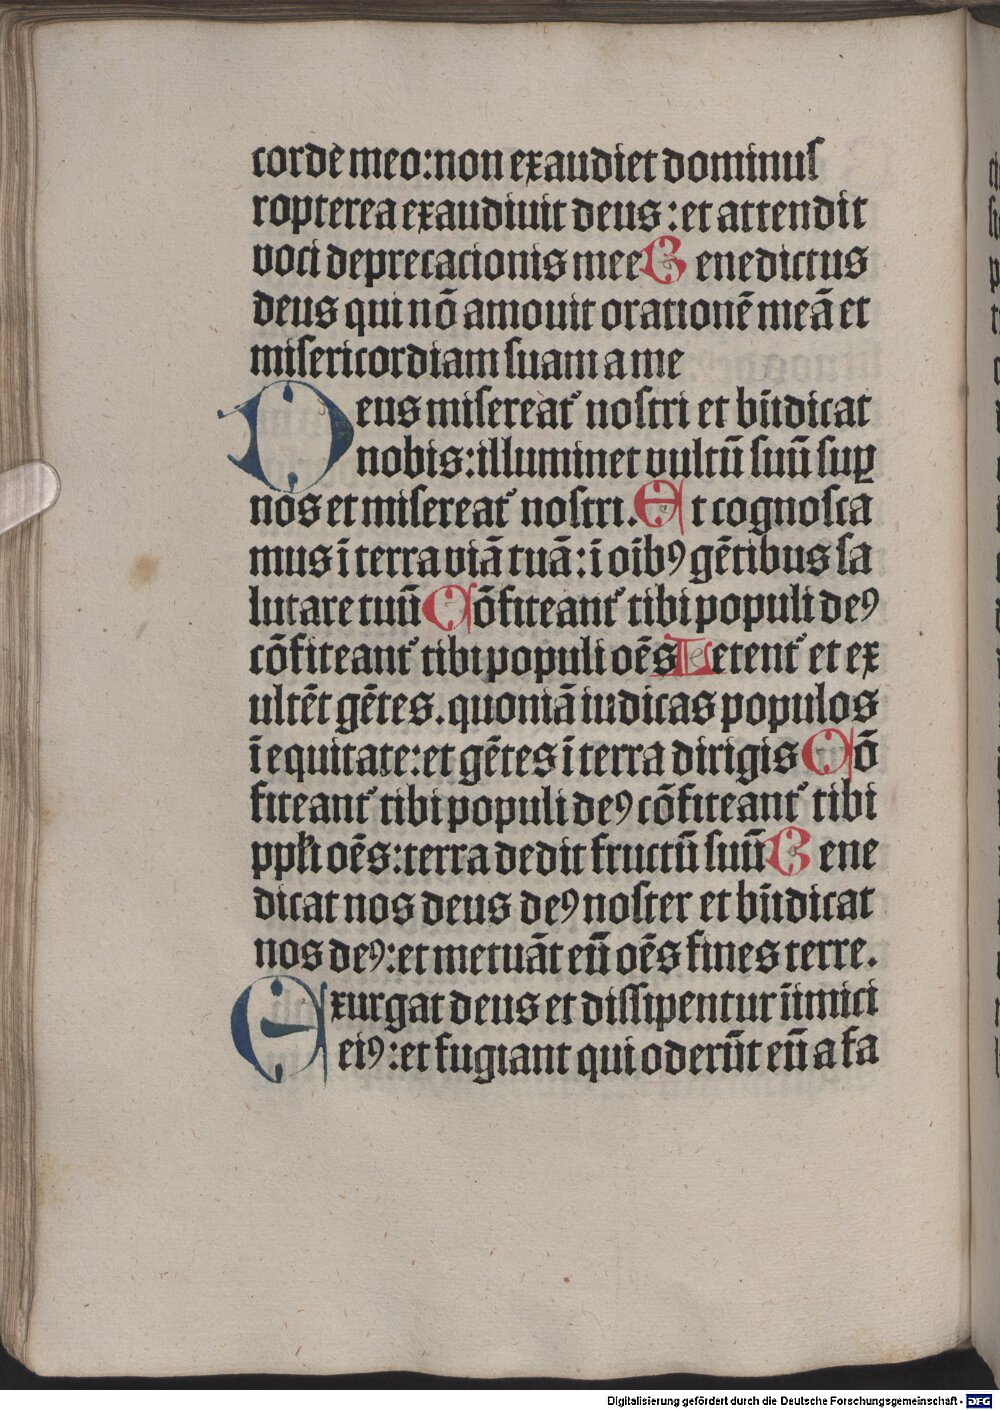 corde meo: non exaudiet dominus
ropterea exaudiuit deus: et attendit
voci deprecacionis mee Benedictus
deus qui nō amouit orationē meā et
misericordiam suam a me
Deus misereat᷑ nostri et bn̄dicat
nobis: illuminet vultū suū suꝑ
nos et misereat᷑ nostri. Et cognosca
mus ī terra viā tuā: ī oīb⁹ gētibus sa
lutare tuū Cōfiteant᷑ tibi populi de⁹
cōfiteant᷑ tibi populi oēs Letent᷑ et ex
ultēt gētes. quoniā iudicas populos
ī equitate: et gētes ī terra dirigis Cō
fiteant᷑ tibi populi de⁹ cōfiteant᷑ tibi
ppl̄i oēs: terra dedit fructū suū Bene
dicat nos deus de⁹ noster et bn̄dicat
nos de⁹: et metuāt eū oēs fines terre.
Exurgat deus et dissipentur īimici
ei⁹: et fugiant qui oderūt eū a fa
Digitalisierung gefördert durch die Deutsche Forschungsgemeinschaft - DFG